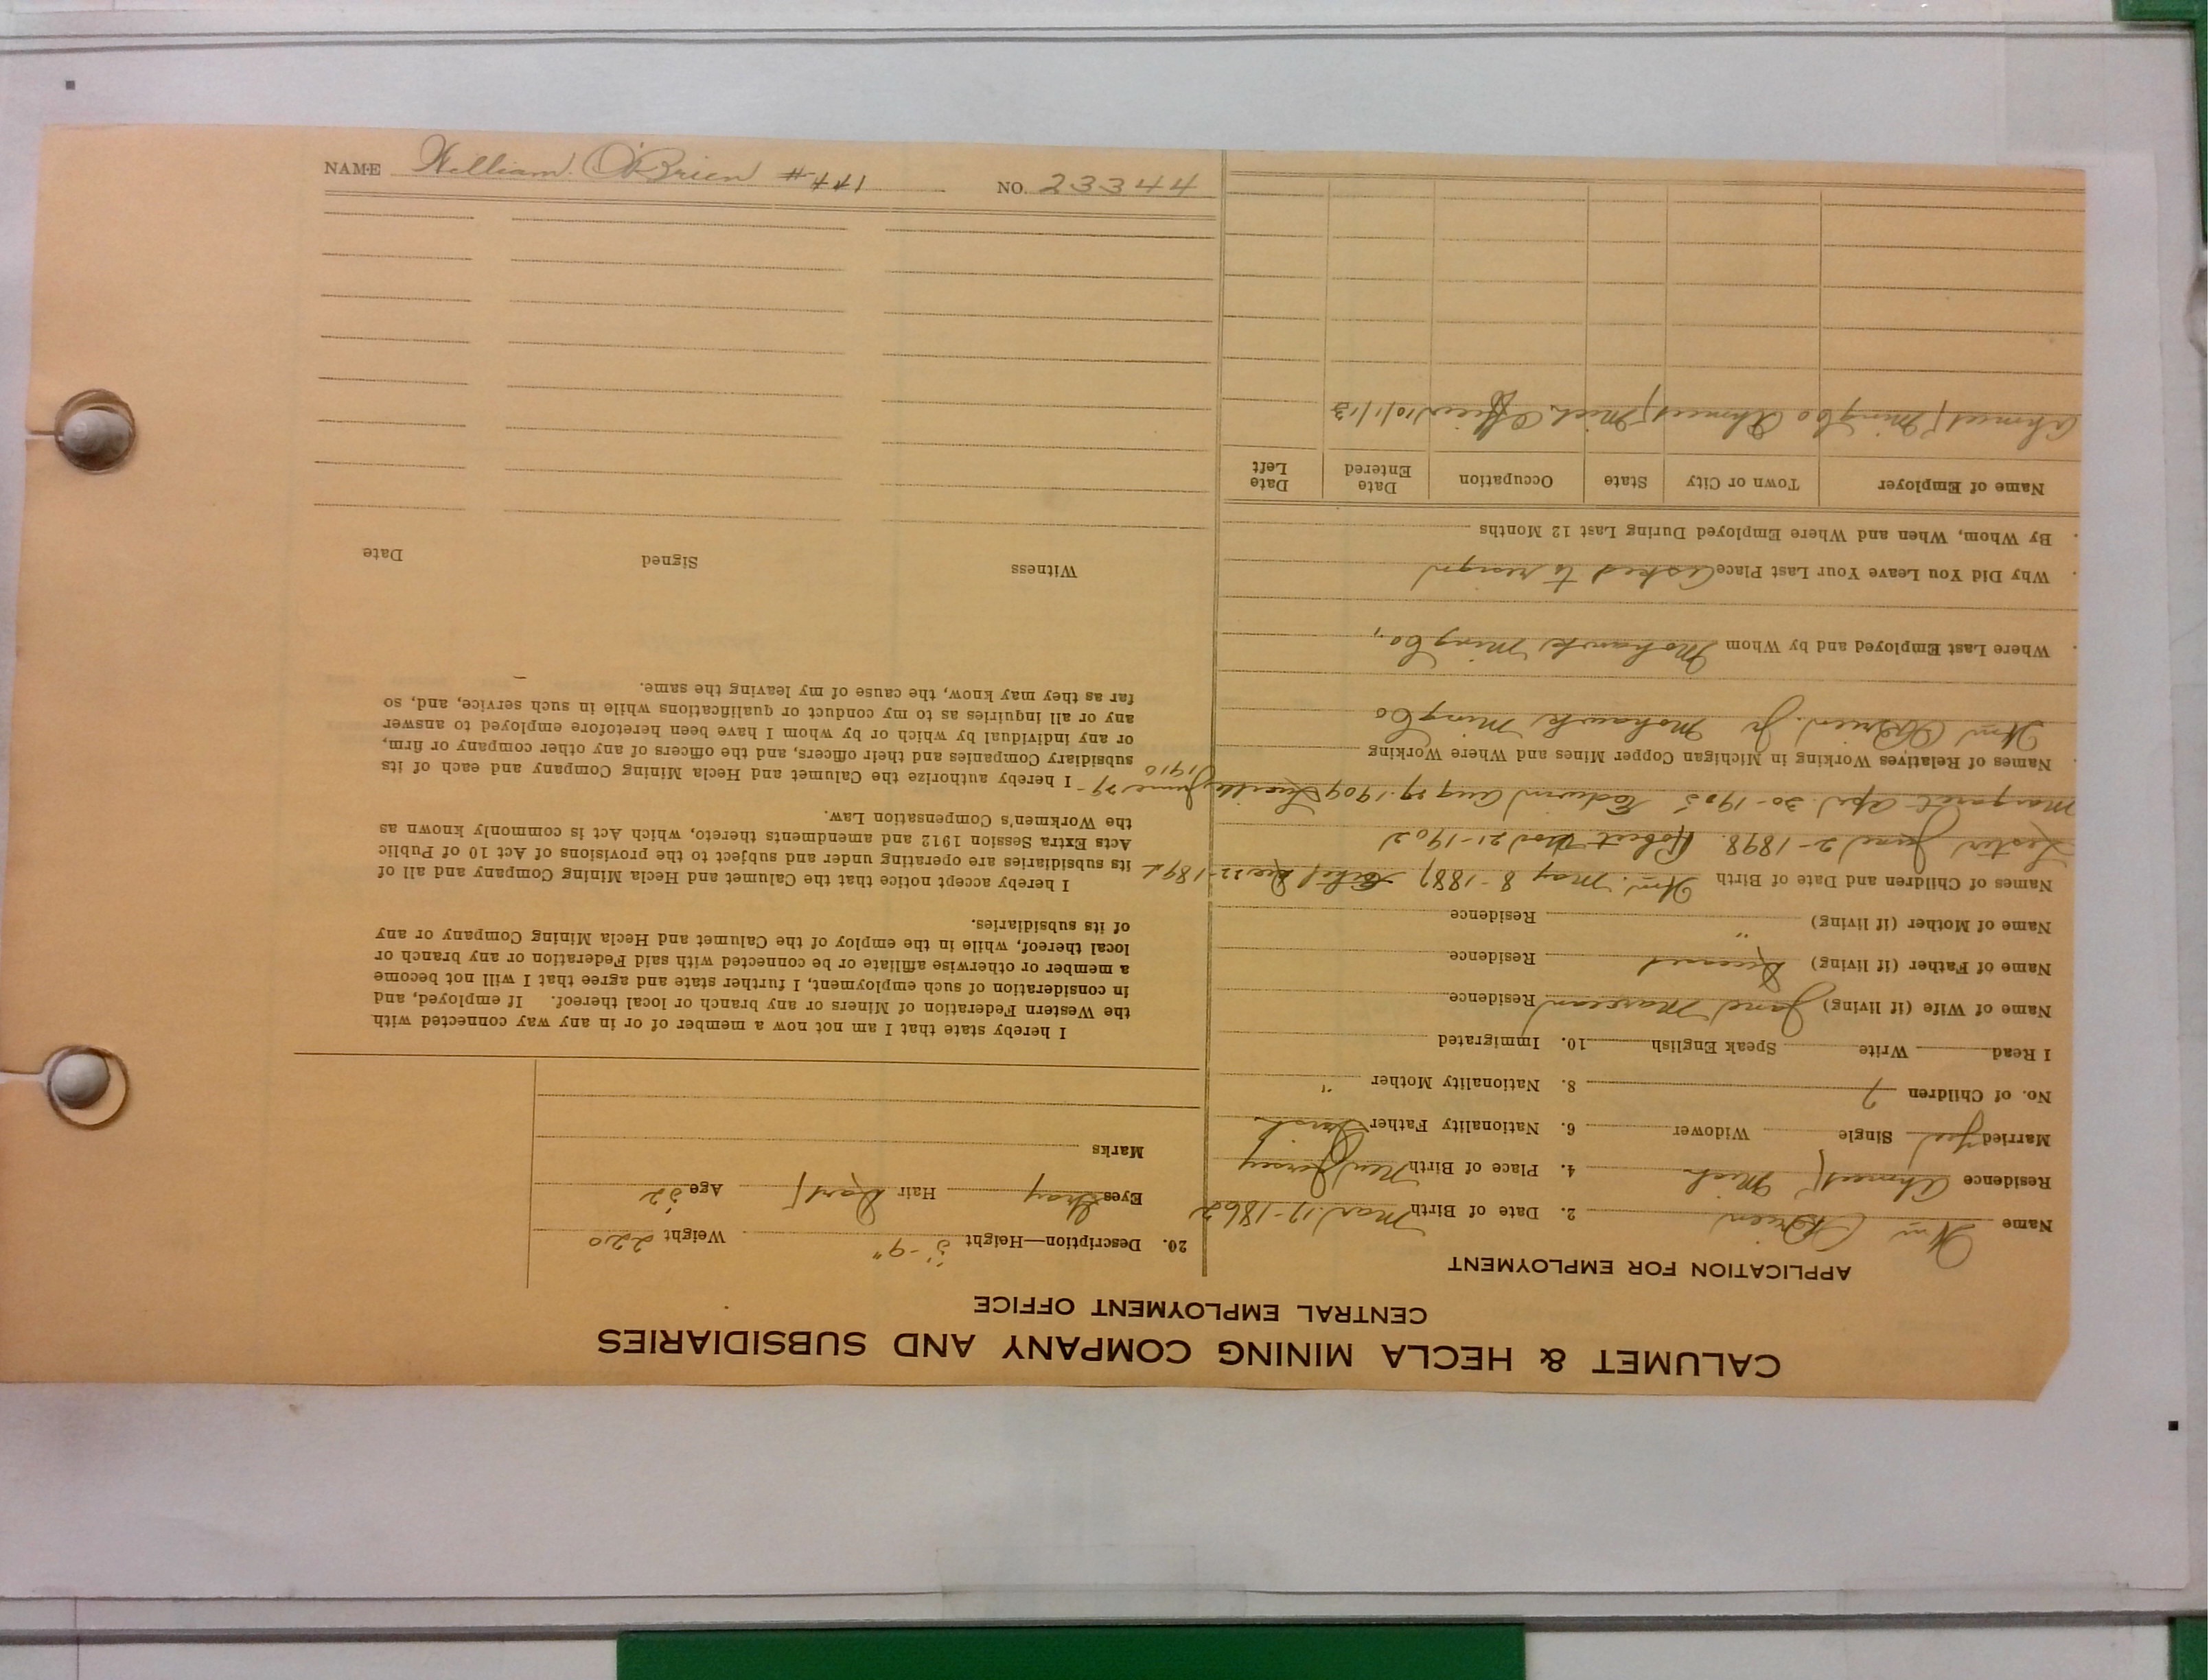 CALUMET & HECLA MINING COMPANY AND SUBSIDIARIES
CENTRAL EMPLOYMENT OFFICE
APPLICATION FOR EMPLOYMENT
Name Wm O'Brien 2. Date of Birth Mar. 17-1862
Residence Ahmeek Mich 4. Place of Birth New Jersey
Married Yes Single Widower 6. Nationality Father Irish
No. of Children 7 8. Nationality Mother "
I Read Write Speak English 10. Immigrated
Name of Wife (if living) Jane Residence
Name of Father (if living) Deceased Residence
Name of Mother (if living) " Residence
Names of Children and Date of Birth Wm. May 8-1887 Dec 22-1892
Lester June 2-1898. Robert Nov 21-1902
Margaret Apr. 30-1905 Edwin Aug 27.1909 Lucille June 29-1910
Names of Relatives Working in Michigan Copper Mines and Where Working
Wm O'Brien. Jr Mohawk Ming Co
Where Last Employed and by Whom Mohawk Ming Co,
Why Did You Leave Your Last Place Asked to resign
By Whom, When and Where Employed During Last 12 Months
Name of Employer Town or City State Occupation Date Entered Date Left
Ahmeek Ming Co Ahmeek Mich. Officer 10/1/13
20. Description—Height 5-9" Weight 220
Eyes Gray Hair Dark Age 52
Marks
I hereby state that I am not now a member of or in any way connected with
the Western Federation of Miners or any branch or local thereof. If employed, and
in consideration of such employment, I further state and agree that I will not become
a member or otherwise affiliate or be connected with said Federation or any branch or
local thereof, while in the employ of the Calumet and Hecla Mining Company or any
of its subsidiaries.
I hereby accept notice that the Calumet and Hecla Mining Company and all of
its subsidiaries are operating under and subject to the provisions of Act 10 of Public
Acts Extra Session 1912 and amendments thereto, which Act is commonly known as
the Workmen's Compensation Law.
I hereby authorize the Calumet and Hecla Mining Company and each of its
subsidiary Companies and their officers, and the officers of any other company or firm,
or any individual by which or by whom I have been heretofore employed to answer
any or all inquiries as to my conduct or qualifications while in such service, and, so
far as they may know, the cause of my leaving the same.
Witness Signed Date
NAME William. O'Brien #441 NO. 23344